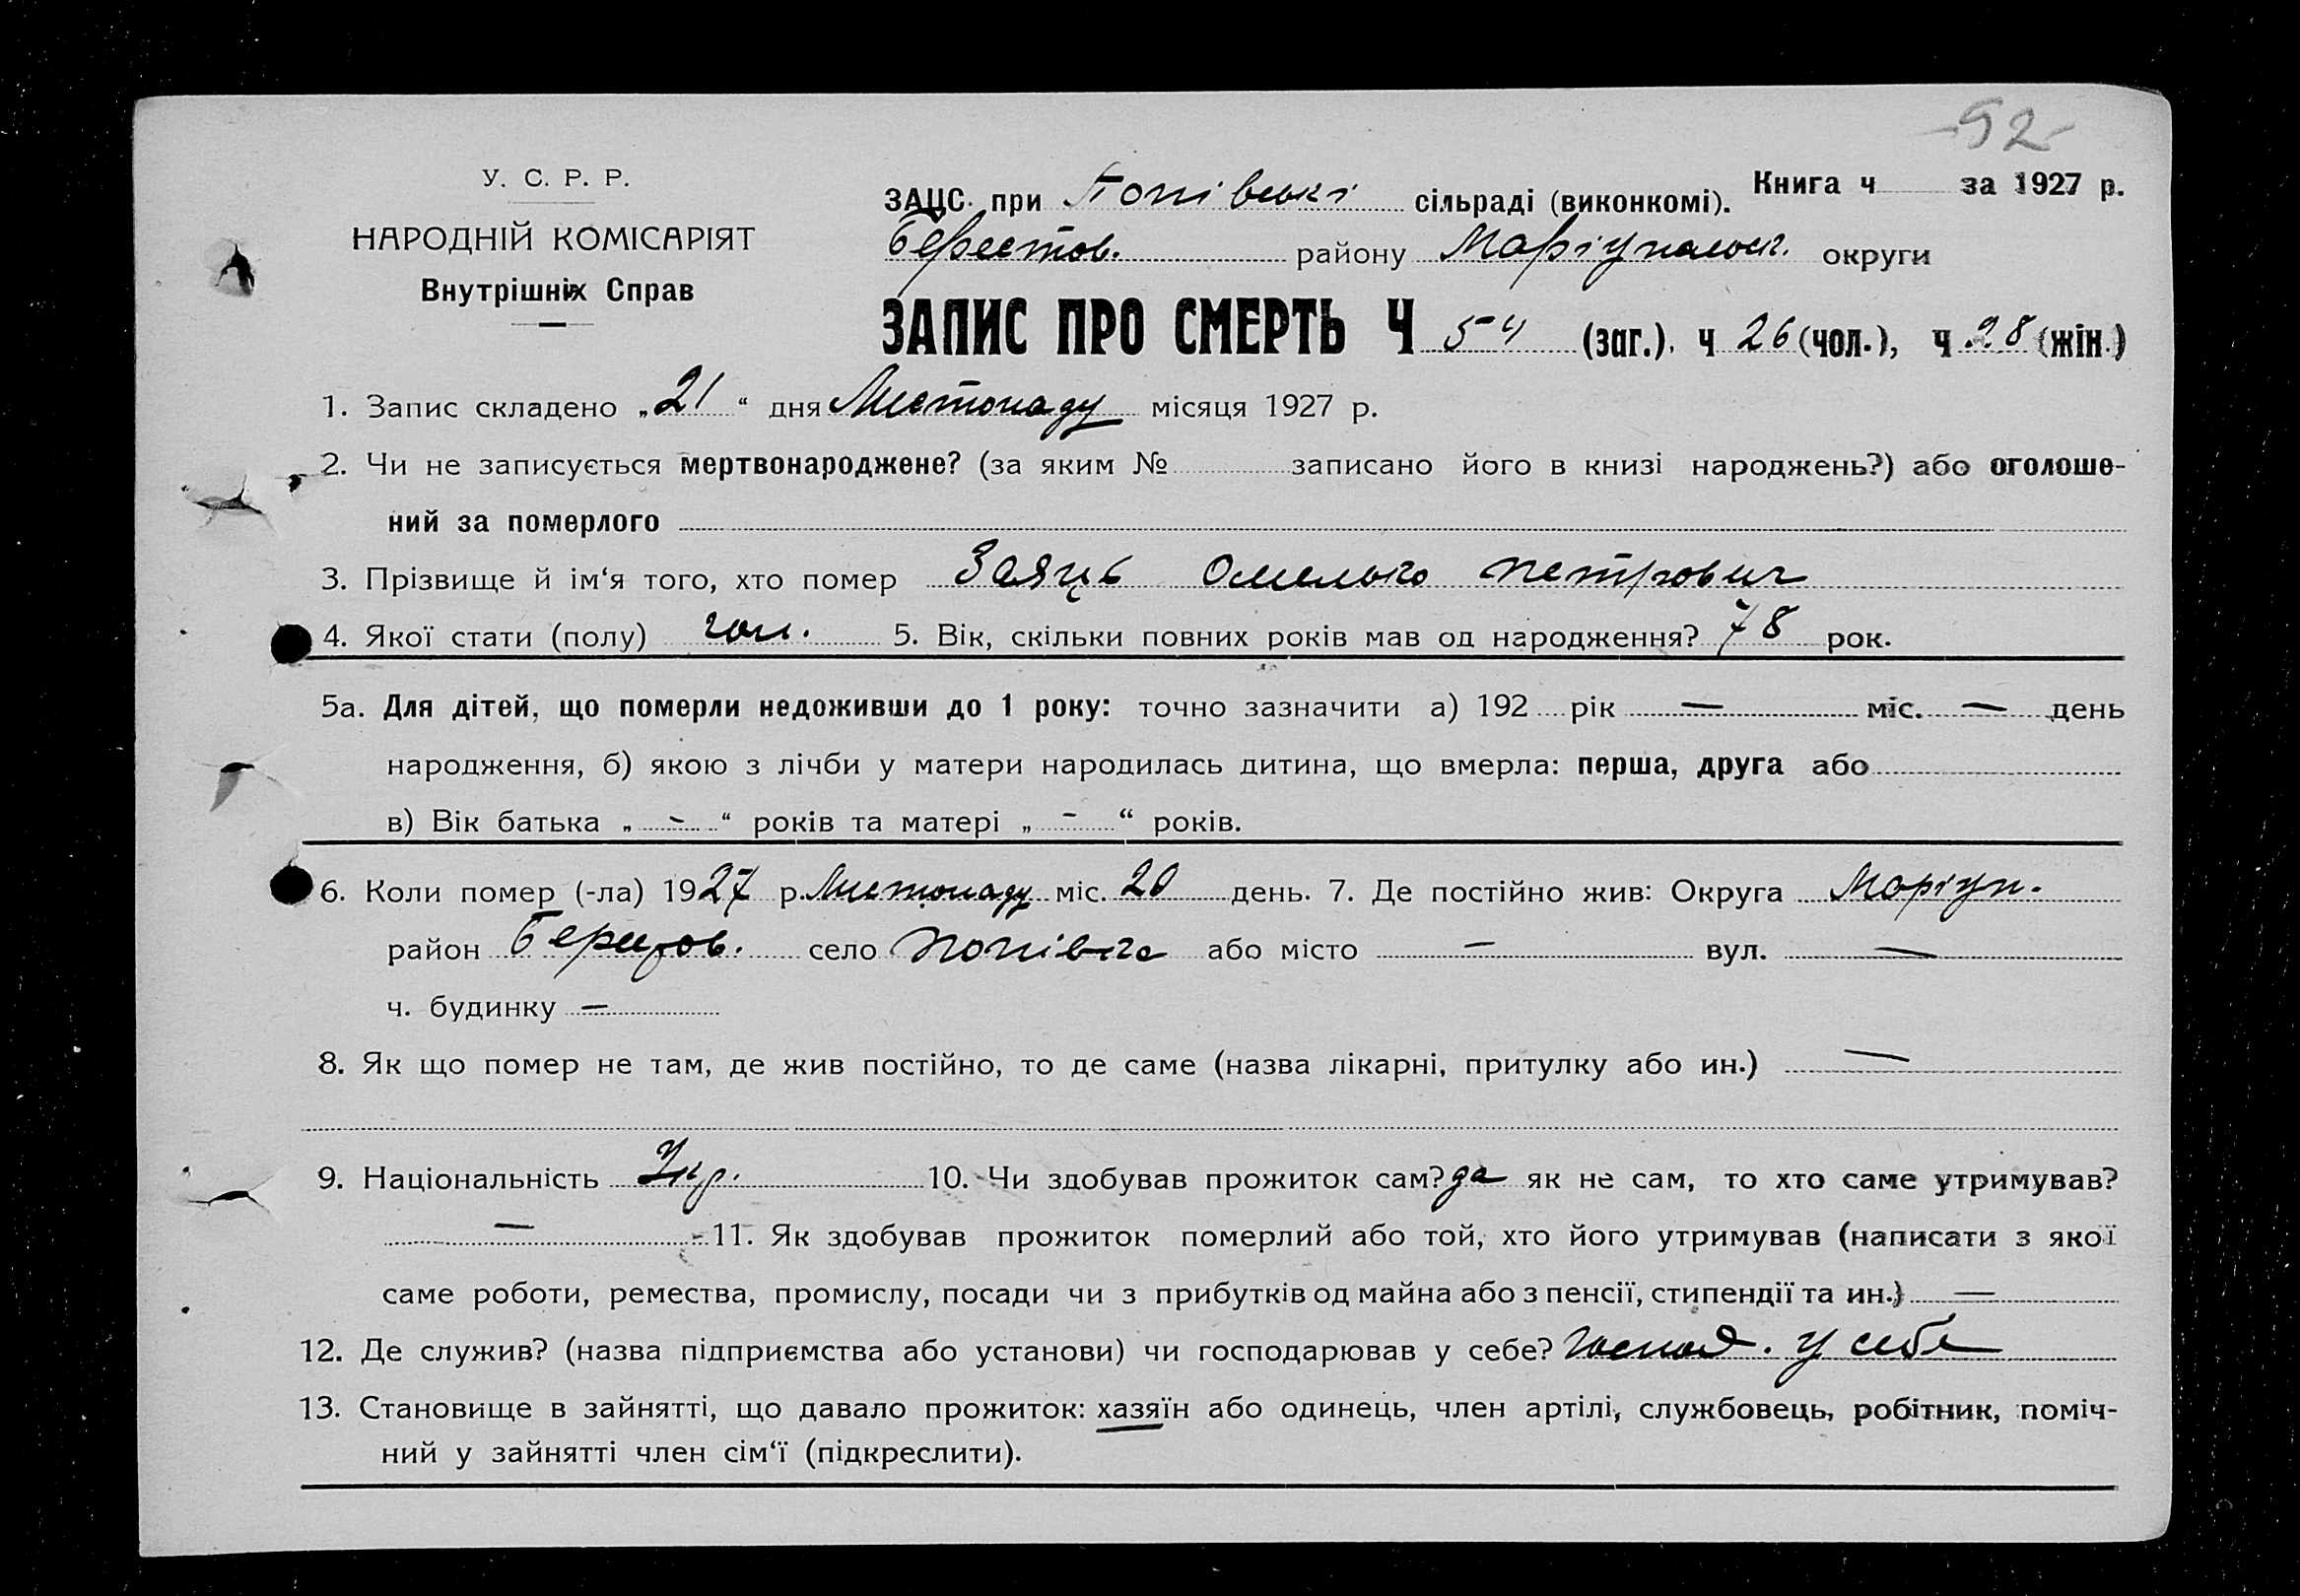 -92-
У. С. Р. Р.
НАРОДНІЙ КОМІСАРІЯТ
Внутрішніх Справ
ЗАЦС. при Попівські сільраді (виконкомі). Книга ч за 1927 р.
Берестов. району Маріупольск. округи
ЗАПИС ПРО СМЕРТЬ Ч 54 (заг.), ч 26 (чол.), ч 28 (жін.)
1. Запис складено „21“ дня Листопаду місяця 1927 р.
2. Чи не записується мертвонароджене? (за яким № записано його в книзі народжень?) або оголоше-
ний за померлого
3. Прізвище й ім‘я того, хто помер Заяць Омелько Петрович
4. Якої стати (полу) чол. 5. Вік, скільки повних років мав од народження? 78 рок.
5а. Для дітей, що померли недоживши до 1 року: точно зазначити а) 192 рік — міс. — день
народження, б) якою з лічби у матери народилась дитина, що вмерла: перша, друга або
в) Вік батька „ - “ років та матері „ - “ років.
6. Коли помер (-ла) 1927 р. Листопаду міс. 20 день. 7. Де постійно жив: Округа Маріуп.
район Берестов. село Попівка або місто — вул. —
ч. будинку —
8. Як що помер не там, де жив постійно, то де саме (назва лікарні, притулку або ин.) —
9. Національність Укр. 10. Чи здобував прожиток сам? да як не сам, то хто саме утримував?
— 11. Як здобував прожиток померлий або той, хто його утримував (написати з якої
саме роботи, ремества, промислу, посади чи з прибутків од майна або з пенсії, стипендії та ин.) —
12. Де служив? (назва підприємства або установи) чи господарював у себе? Господ. у себе
13. Становище в зайнятті, що давало прожиток: хазяїн або одинець, член артілі, службовець, робітник, поміч-
ний у зайнятті член сім‘ї (підкреслити).